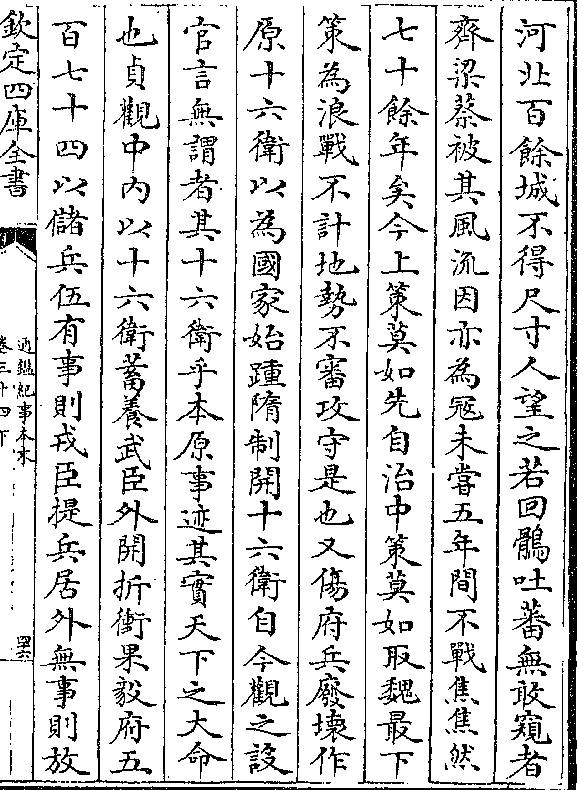 河北百餘城不得尺寸人望之若回鶻吐蕃無敢窺者
齊梁蔡被其風流因亦為冦未嘗五年間不戰焦焦然
七十餘年矣今上策莫如先自治中策莫如取魏最下
策為浪戰不計地勢不審攻守是也又傷府兵廢壞作
原十六衛以為國家始踵隋制開十六衛自今觀之設
官言無謂者其十六衛乎本原事迹其實天下之大命
也貞觀中内以十六衛蓄養武臣外開折衝果毅府五
百七十四以儲兵伍有事則戎臣提兵居外無事則放
欽定四庫全書
通鑑紀事本末
卷三十四下
四六